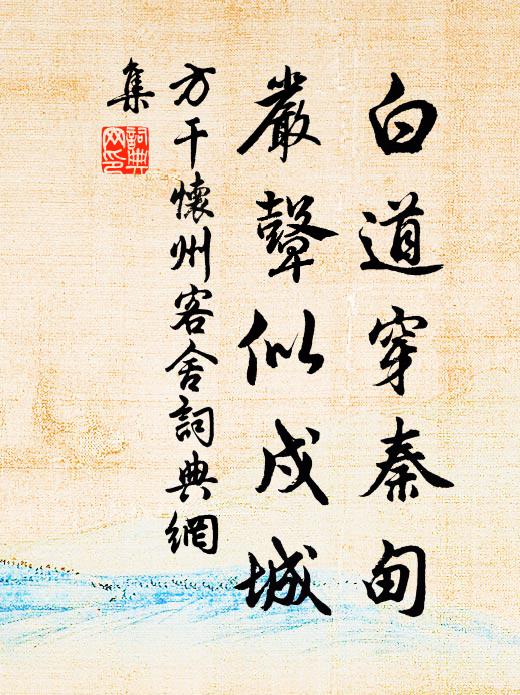 白道穿秦甸
嚴鼙似戍城
方干懷州客舍詞典網
集
詞典网印